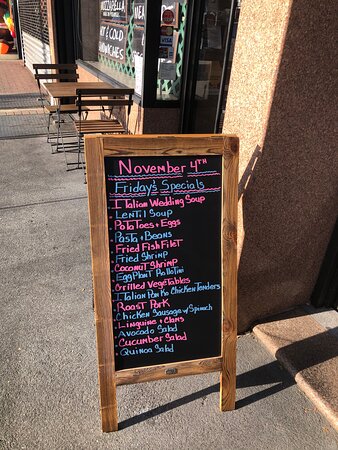 MOZZARELLA
HOT & COLD
SANDWICHES
November 4TH
Friday's Specials
Italian Wedding Soup
Lentil Soup
Potatoes & Eggs
Pasta & Beans
Fried Fish Filet
Fried Shrimp
Coconut Shrimp
Eggplant Rollotini
Grilled Vegetables
Italian Panko Chicken Tenders
Roast Pork
Chicken Sausage w/ Spinach
Linguine & Clams
Avocado Salad
Cucumber Salad
Quinoa Salad